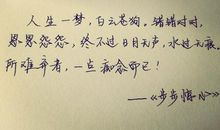 人生一梦，白云苍狗，错错对对，
恩恩怨怨，终不过日月无声，水过无痕。
所难弃者，一点痴念而已！
——《步步惊心》